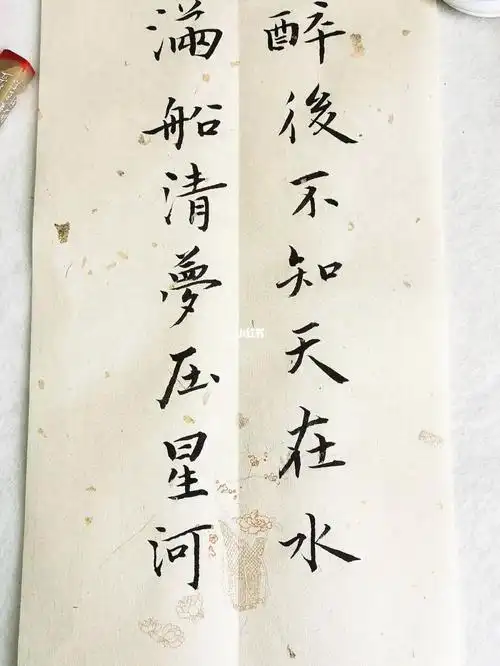 醉後不知天在水
滿船清夢压星河
小红书